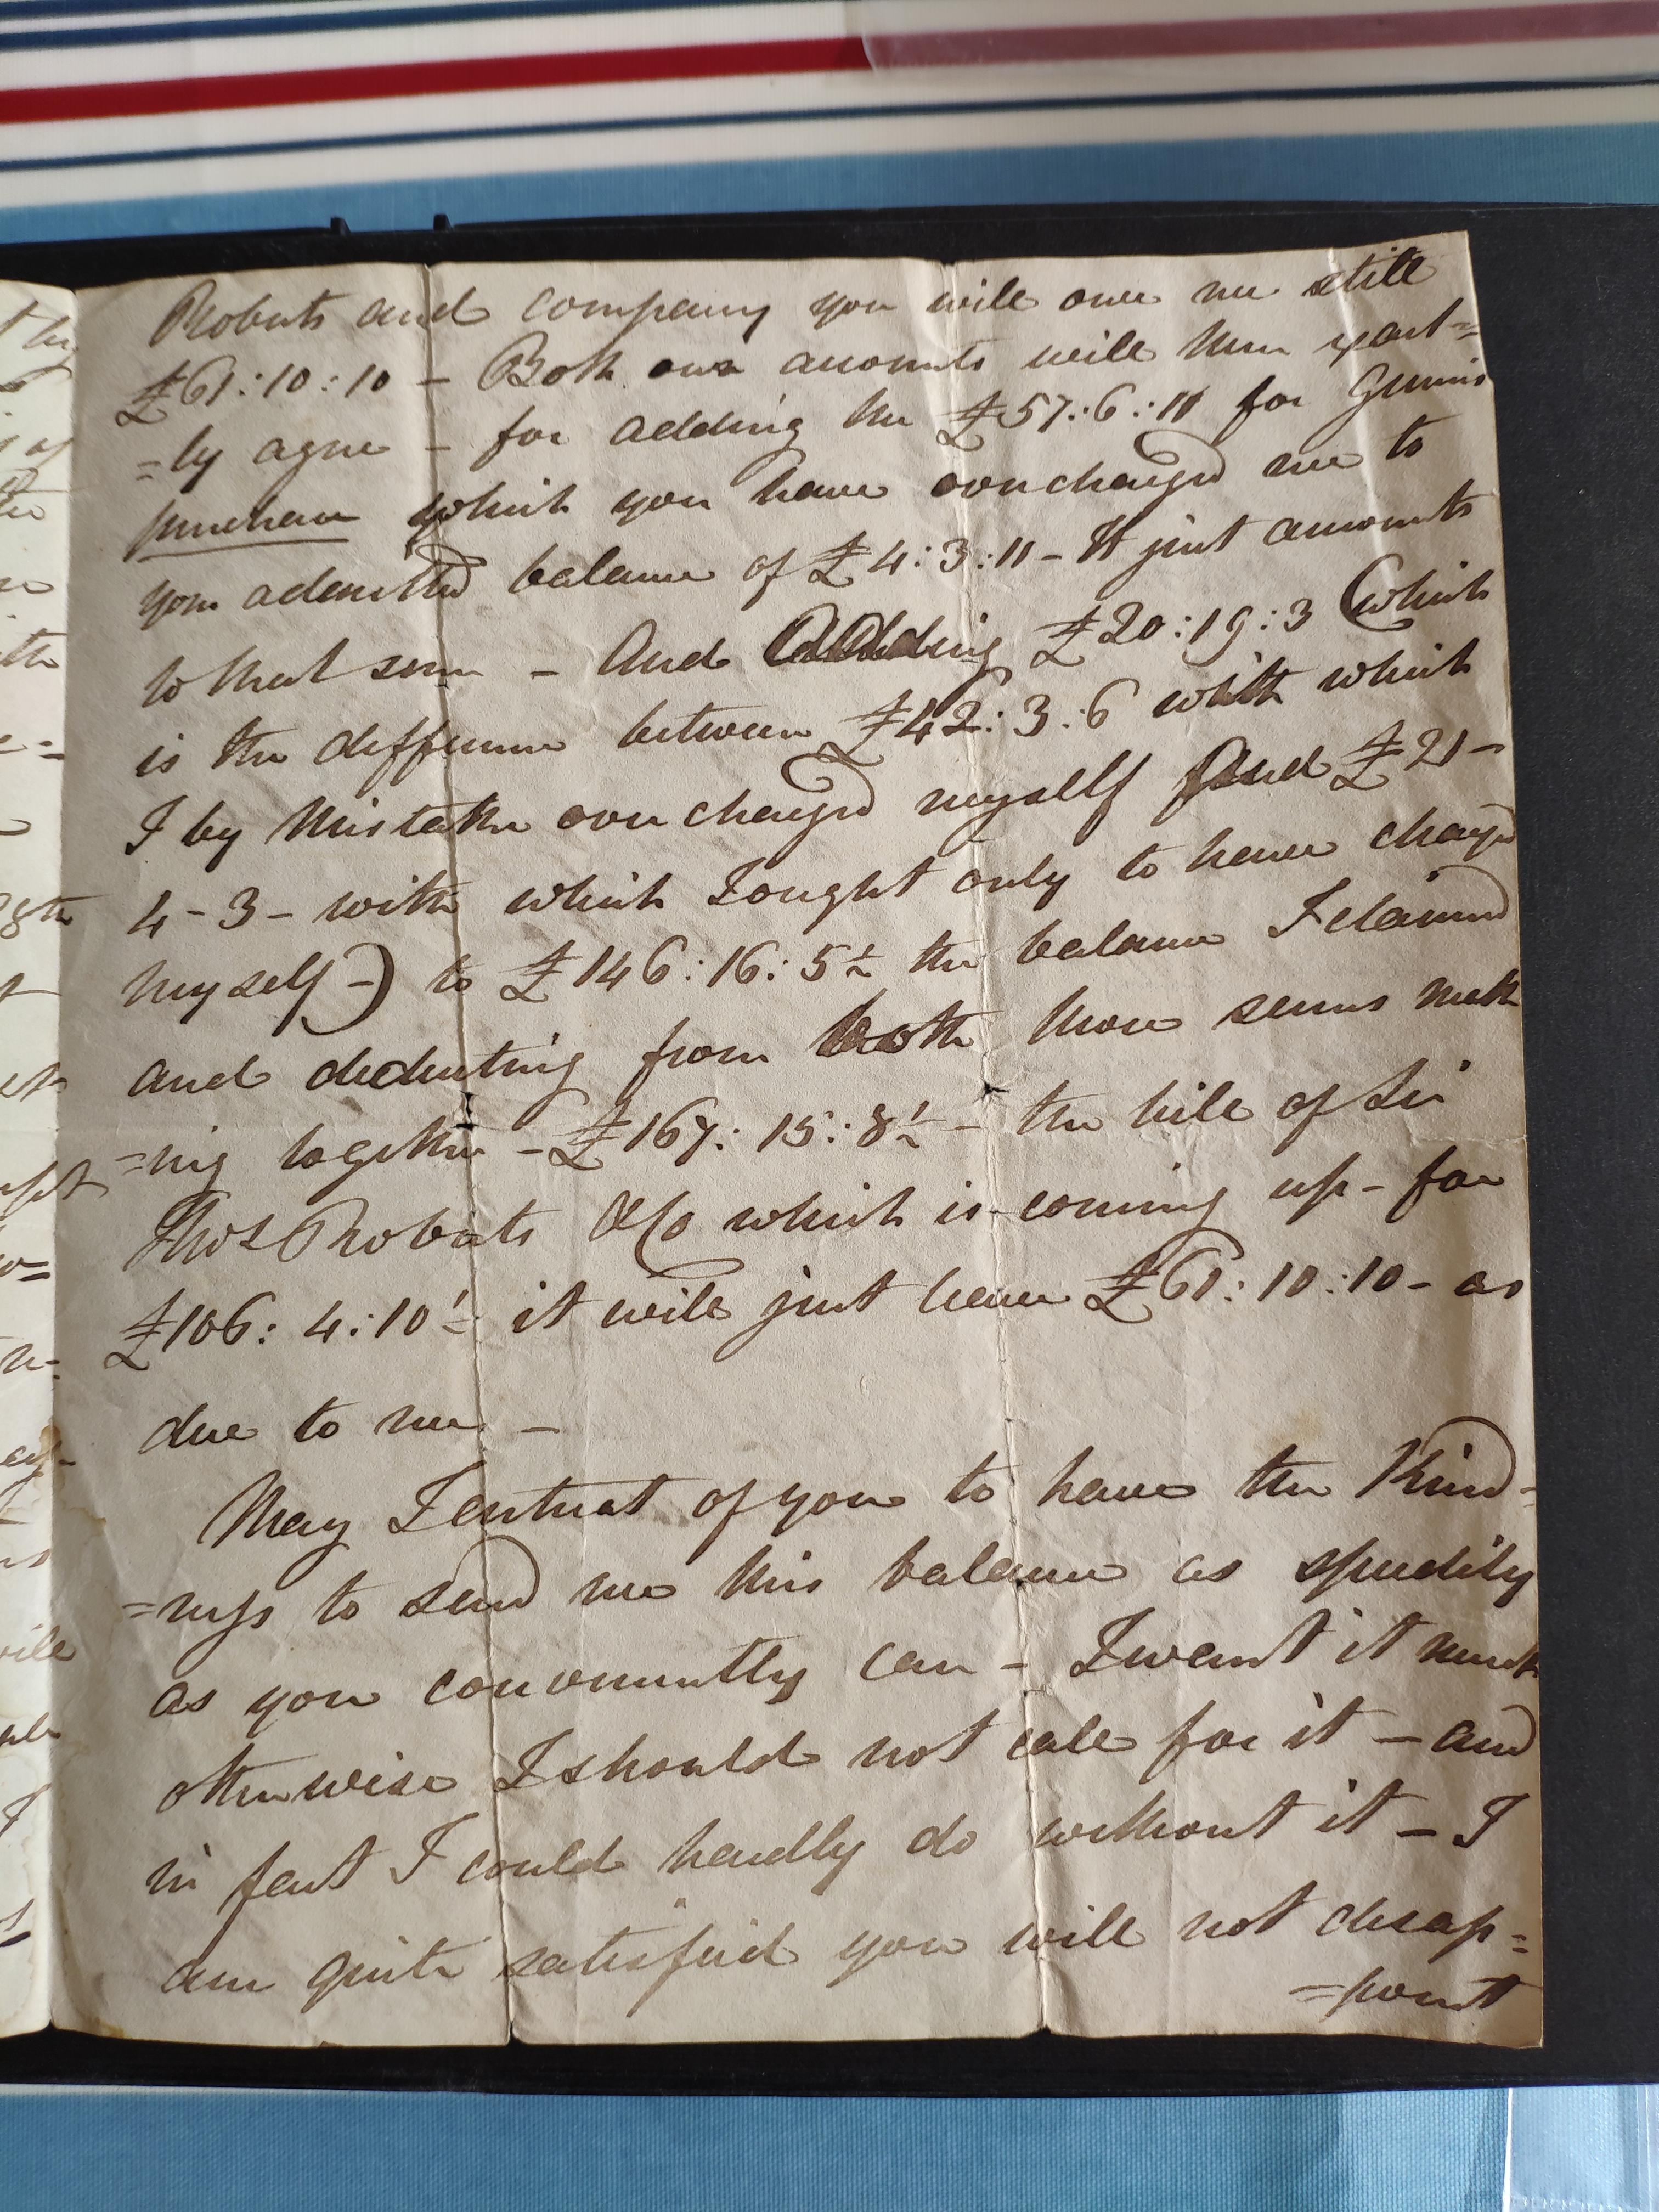 Roberts and company you will owe me still
£61:10:10 – Both our accounts will then exact=
=ly agree – for adding the £57:6:11 for
purchase which you have overcharged me to
your admitted balance of £4:3:11 – It just amounts
to that sum – And adding £20:19:3 (which
is the difference between £42:3:6 with which
I by mistake over charged myself and £21–
4–3– with which I ought only to have charged
myself–) to £146:16:5½ the balance I claimed
and deducting from both those sums mak
=ing together – £167:15:8½ – the bill of Sir
Thos Roberts &Co which is coming up – for
£106:4:10½ it will just leave £61:10:10– as
due to me –
May I entreat of you to have the Kind=
=ness to send me this balance as speedily
as you conveniently can – I want it much
otherwise I should not call for it – and
in fact I could hardly do without it – I
am quite satisfied you will not disap=
=point